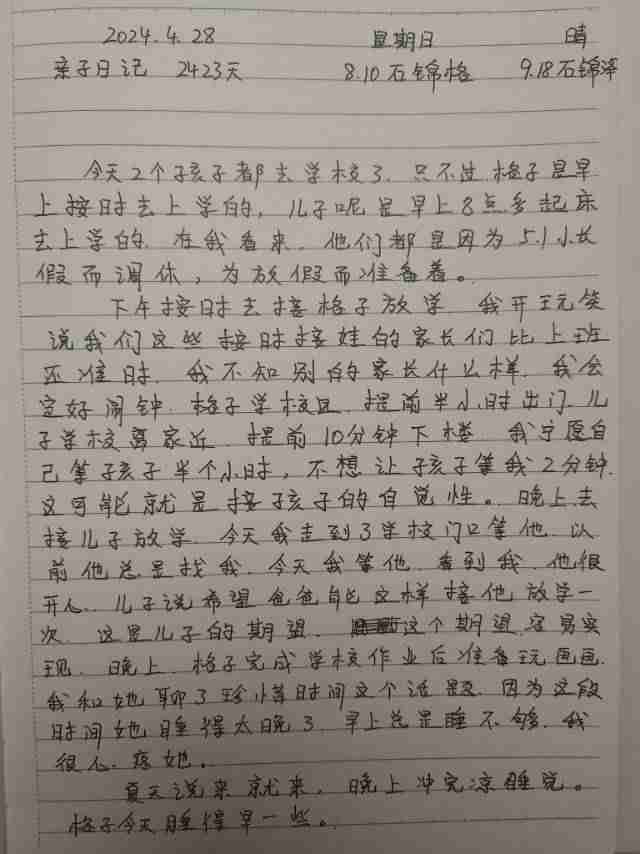 2024.4.28 星期日 晴
亲子日记 2423天 8.10石锦格 9.18石锦泽
今天2个孩子都去学校了.只不过格子是早
上按时去上学的,儿子呢是早上8点多起床
去上学的.在我看来.他们都是因为5.1小长
假而调休,为放假而准备着。
下午按时去接格子放学.我开玩笑
说我们这些按时接娃的家长们比上班
还准时.我不知别的家长什么样.我会
定好闹钟.格子学校远.提前半小时出门.儿
子学校离家近.提前10分钟下楼.我宁愿自
己等孩子半个小时,不想让孩子等我2分钟.
这可能就是接孩子的自觉性。晚上去
接儿子放学.今天我走到了学校门口等他.以
前他总是找我.今天我等他.看到我.他很
开心.儿子说希望爸爸能这样接他放学一
次.这是儿子的期望.这个期望容易实
现.晚上.格子完成学校作业后准备玩画画.
我和她聊了珍惜时间这个话题.因为这段
时间她睡得太晚了.早上总是睡不够.我
很心疼她。
夏天说来就来,晚上冲完凉睡觉。
格子今天睡得早一些。